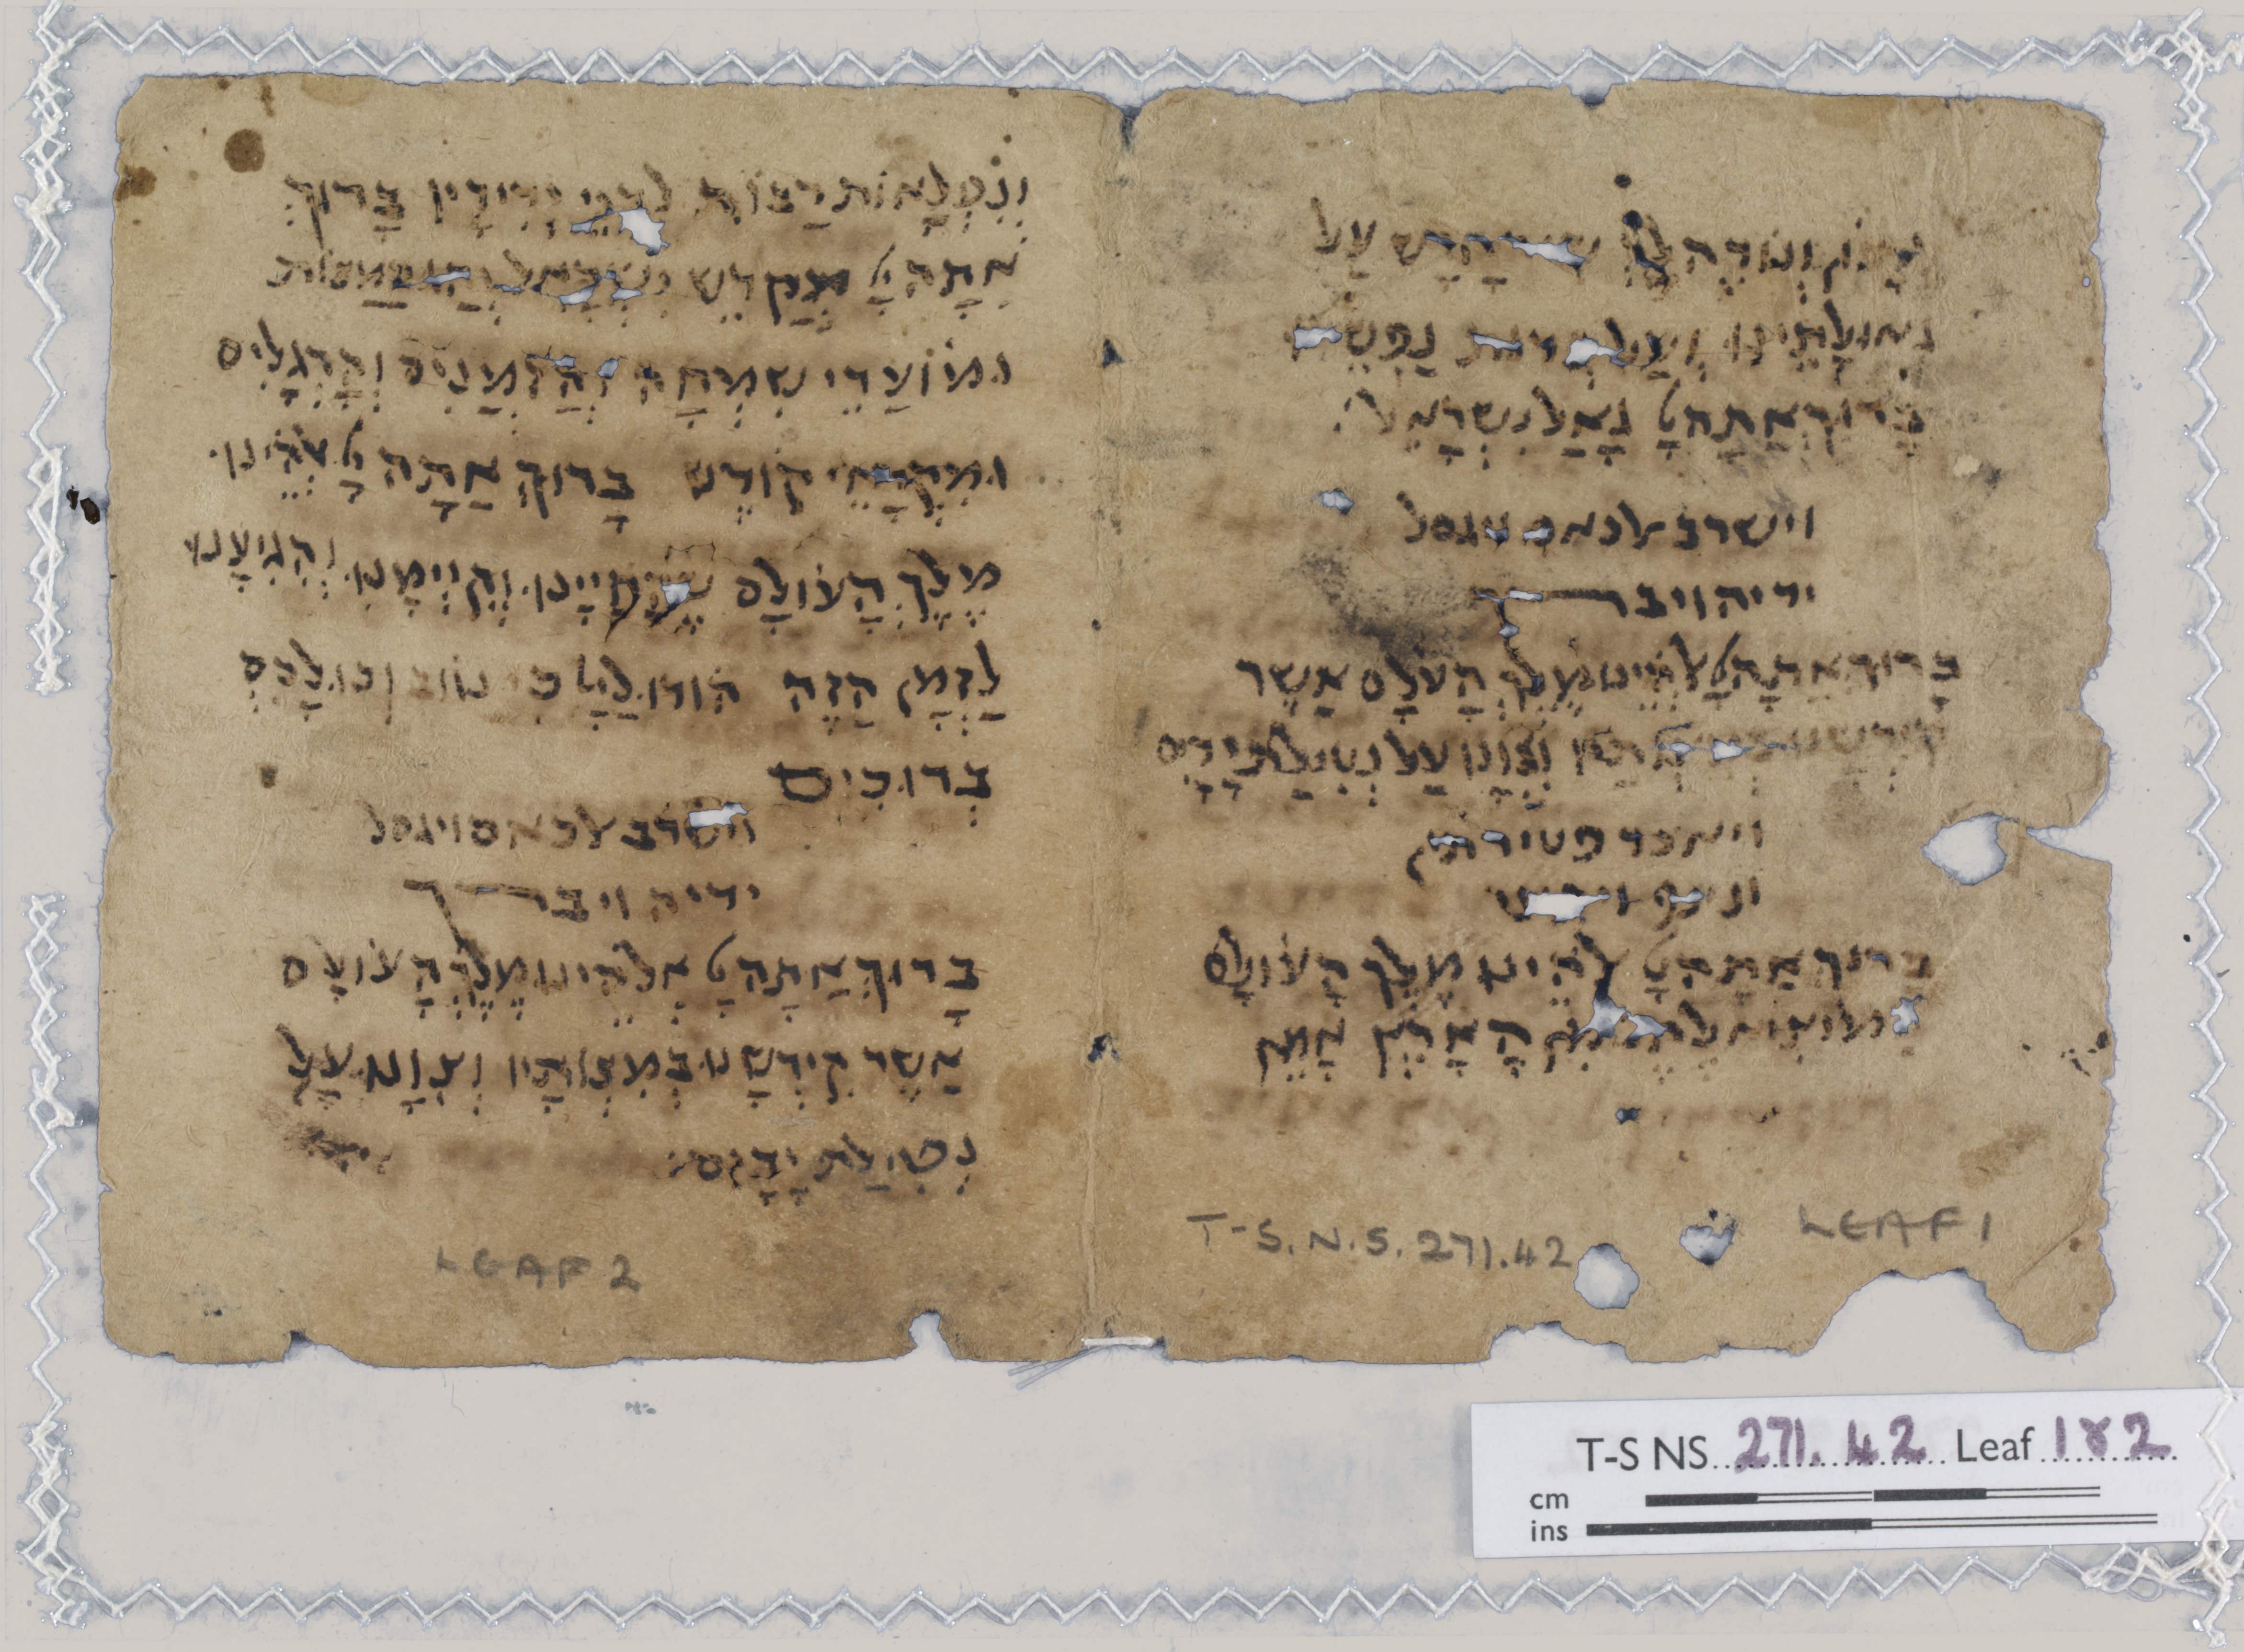 ונודה לך שיר חדש על
גאולתינו ועל פדות נפשינו
ברוך אתה גאל ישראל
וישרב אלכאס ויגסל
ידיה ויברך
ברוך אתה אלהינו מלך העולם אשר
וצונו על נטילת ידים
ויאכד פטירתין
ברוך אתה אלהינו מלך העולם
המוציא לחם מן הארץ אמן
T-S. N.S. 271.42
LEAF 1
ונפלאות רבות ידידיו ברוך
אתה מקדש ישראל
ומועדי שמחה והזמנים והרגלים
ומקראי קודש ברוך אתה אלהינו
מלך העולם שהחיינו וקיימנו והגיענו
לזמן הזה הודו לייי כי טוב וכולכם
ברוכים
וישרב אלכאס ויגסל
ידיה ויברך
ברוך אתה אלהינו מלך העולם
אשר קידשנו במצותיו וצונו על
נטילת ידים
LEAF 2
T-S NS 271.42 Leaf 1&2
cm
ins